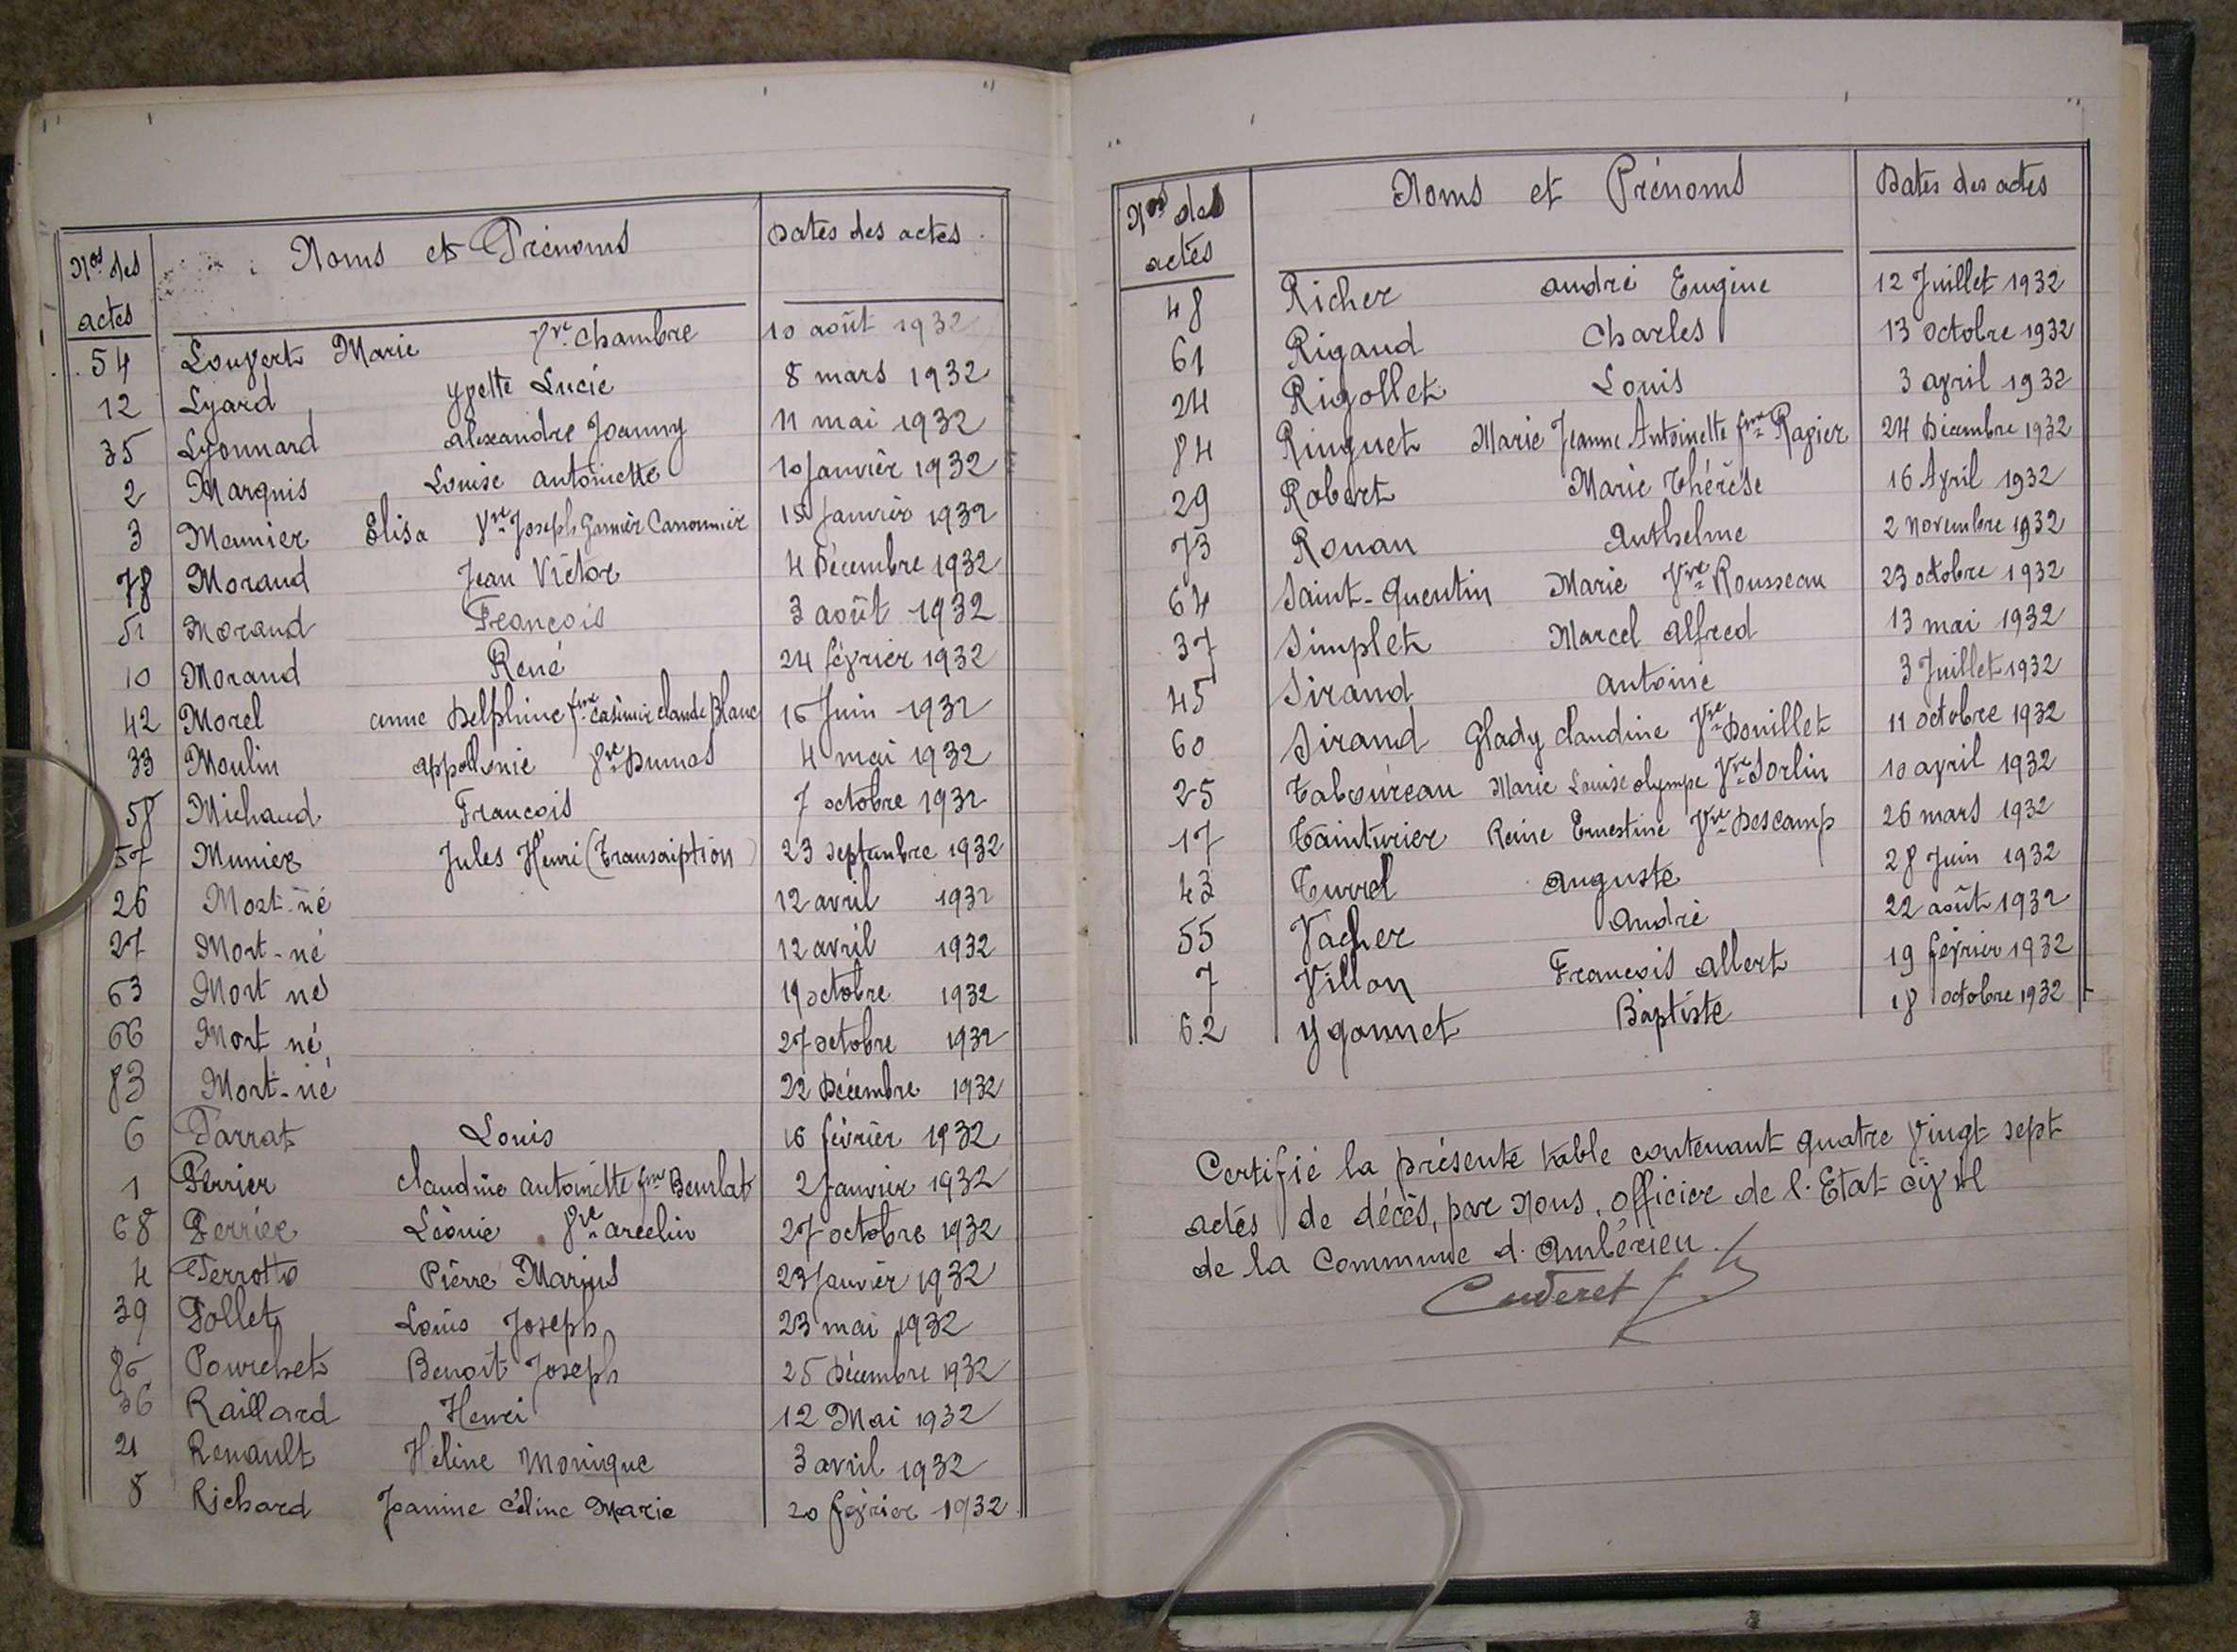 Nos des actes Noms et Prénoms Dates des actes
54 Louvert Marie Vve Chambre 10 août 1932
12 Lyard Yvette Lucie 8 mars 1932
35 Lyonnard alexandre Joanny 11 mai 1932
2 Marquis Louise antoinette 10 Janvier 1932
3 Meunier Elisa Vve Joseph Garnier Canonnier 15 Janvier 1932
78 Morand Jean Victor 4 Décembre 1932
51 Morand François 3 août 1932
10 Morand René 24 février 1932
42 Morel anne Delphine fme Casimir claude Blanc 16 Juin 1932
33 Moulin appollonie Vve Dumas 4 mai 1932
58 Michaud Francois 7 octobre 1932
57 Munier Jules Henri (Transcription) 23 septembre 1932
26 Mort-né 12 avril 1932
27 Mort-né 12 avril 1932
63 Mort nés 19 octobre 1932
66 Mort né 27 octobre 1932
83 Mort-né 22 Décembre 1932
6 Parrat Louis 16 février 1932
1 Perrier claudine antoinette fme Beurlat 2 Janvier 1932
68 Perrier Léonie Vve arcelin 27 octobre 1932
4 Perrotto Pierre Marius 23 Janvier 1932
39 Pollet Louis Joseph 23 mai 1932
86 Pourchet Benoit Joseph 25 Décembre 1932
36 Raillard Henri 12 Mai 1932
21 Renault Hélène Monique 3 avril 1932
8 Richard Jeanine Céline Marie 20 février 1932
Nos des actes Noms et Prénoms Dates des actes
48 Richer andré Eugène 12 Juillet 1932
61 Rigaud Charles 13 octobre 1932
24 Rigollet Louis 3 avril 1932
84 Ringuet Marie Jeanne Antoinette fme Ravier 24 Décembre 1932
29 Robert Marie Thérèse 16 Avril 1932
73 Ronan Anthelme 2 novembre 1932
64 Saint-Quentin Marie Vve Rousseau 23 octobre 1932
37 Simplet Marcel Alfred 13 mai 1932
45 Sirand antoine 3 Juillet 1932
60 Sirand Glady claudine Vve Douillet 11 octobre 1932
25 Taboureau Marie Louise olympe Vve Sorlin 10 avril 1932
17 Tainturier Reine Ernestine Vve Descamp 26 mars 1932
43 Turrel auguste 28 Juin 1932
55 Vacher André 22 août 1932
7 Villon Francois Albert 19 février 1932
62 Yvonnet Baptiste 18 octobre 1932
Certifié la présente table contenant quatre vingt sept
actes de décès, par Nous, officier de l'Etat civil
de la Commune d'Ambérieu.